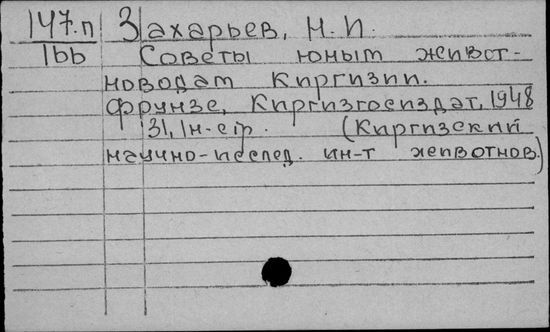 147.п Захарьев, Н. И.
1bb Советы юным живот-
новодам Киргизии.
Фрунзе, Киргизгосиздат, 1948
31, 1н. стр. (Киргизский
научно-исслед. ин-т животнов.)